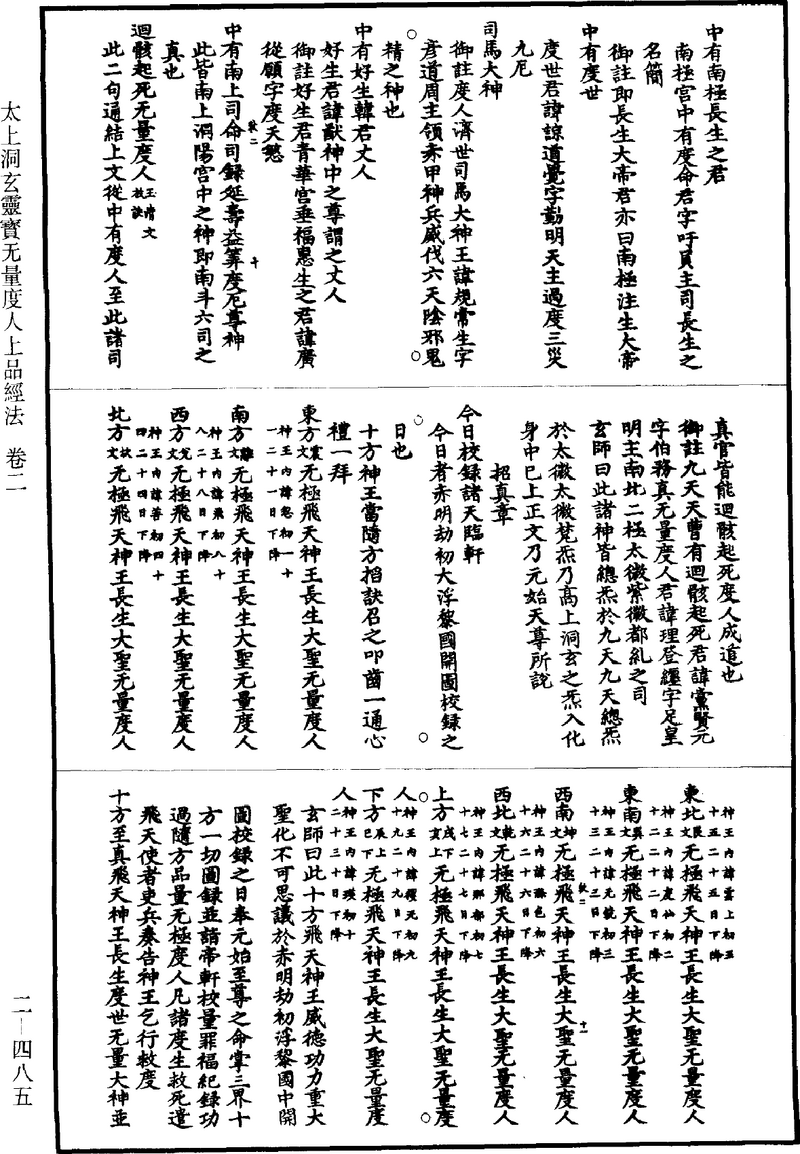 太上洞玄靈寶无量度人上品經法　卷二
二—四八五
中有南極長生之君
南極宮中有度命君字吁員主司長生之
名簡
御註即長生大帝君亦曰南極注生大帝
中有度世
度世君諱諒道覺字勤明天主過度三災
九厄
司馬大神
御註度人濟世司馬大神王諱規常生字
彥道周主領赤甲神兵威伐六天陰邪鬼
精之神也
中有好生韓君丈人
好生君諱獸神中之尊謂之丈人
御註好生君青華宮垂福惠生之君諱廣
從願字度天愁
中有南上司命司錄延壽益筭度厄尊神
此皆南上洞陽宮中之神即南斗六司之
真也
迴骸起死无量度人
此二句通結上文從中有度人至此諸司
真官皆能迴骸起死度人成道也
御註九天天曹有迴骸起死君諱黨賢元
字伯務真无量度人君諱理登纏字足皇
明主南北二極太微紫微都糺之司
玄師曰此諸神皆總炁於九天九天總炁
於太微太微梵炁乃高上洞玄之炁入化
身中巳上正文乃元始天尊所說
招真章
今日校錄諸天臨軒
今日者赤明劫初大浮黎國開圖校錄之
日也
十方神王當隨方掐訣召之叩齒一通心
禮一拜
東方震文无極飛天神王長生大聖无量度人
一二十一日下降
南方離文无極飛天神王長生大聖无量度人
八二十八日下降
西方兌文无極飛天神王長生大聖无量度人
神王內諱菩初四十
四二十四日下降
北方坎文无極飛天神王長生大聖无量度人
神王內諱雲上初五
十五二十五日下降
東北艮文无極飛天神王長生大聖无量度人
神王內諱度仙初二
十二二十二日下降
東南巽文无極飛天神王長生大聖无量度人
十三二十三日下降
西南坤文无極飛天神王長生大聖无量度人
十六二十六日下降
西北乾文无極飛天神王長生大聖无量度人
神王內諱那都初七
十七二十七日下降
上方戌下亥上无極飛天神王長生大聖无量度
人
十九二十九日下降
下方辰上巳下无極飛天神王長生大聖无量度
人
二十三十日下降
玄師曰此十方飛天神王威德功力重大
聖化不可思議於赤明劫初浮黎國中開
圖校錄之日奉元始至尊之命掌三界十
方一切圖錄並詣帝軒校量罪福紀錄功
過隨方品量无極度人凡諸度生救死遣
飛天使者吏兵奏告神王乞行救度
十方至真飛天神王長生度世无量大神並